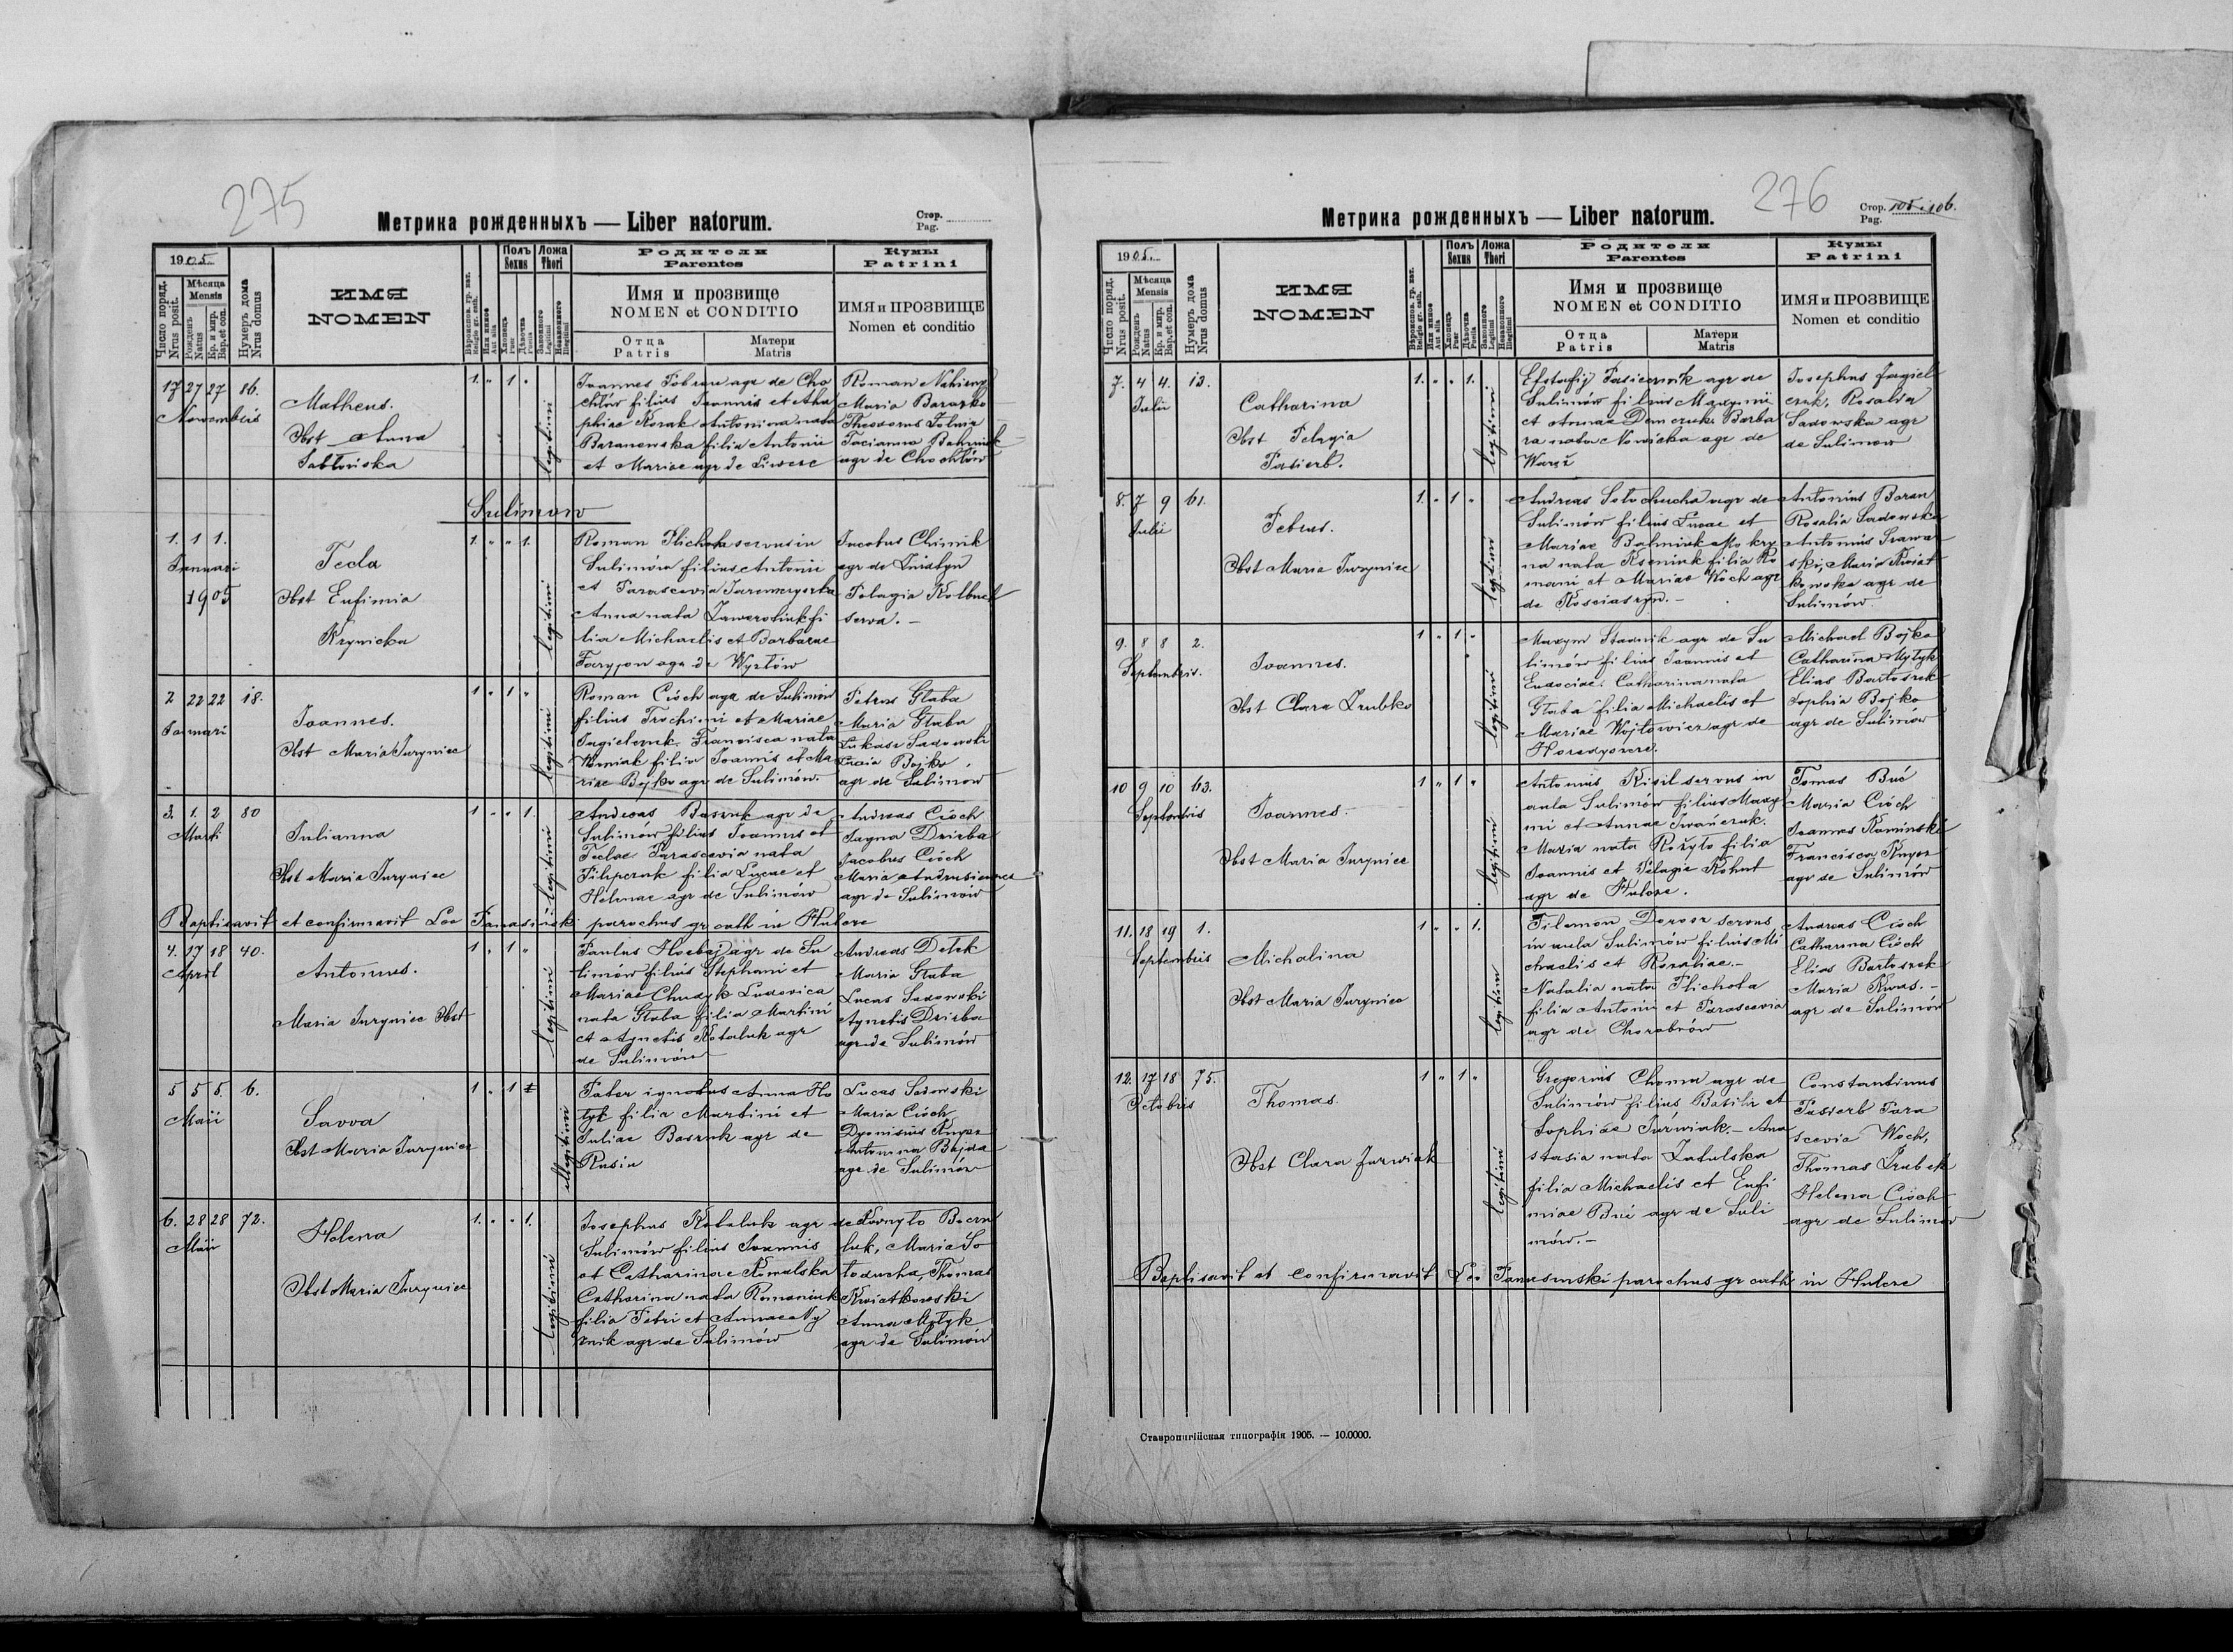 275
Метрика рожденныхъ — Liber natorum.
Стор.
Pag.
1905.
Число поряд.
Nrus posit.
Мѣсяца
Mensis
Рожденъ
Natus
Кр. и мир.
Bap. et con.
Нумеръ дома
Nrus domus
ИМЯ
NOMEN
Вѣроиспов. гр. кат.
Religio gr. cath.
Или инное
Aut alia
Полъ
Sexus
Хлопецъ
Puer
Дѣвочка
Puella
Ложа
Thori
Законного
Legitimi
Незаконного
Illegitimi
Родители
Parentes
Имя и прозвище
NOMEN et CONDITIO
Отца
Patris
Матери
Matris
Кумы
Patrini
ИМЯ и ПРОЗВИЩЕ
Nomen et conditio
17 27 27 16.
Novembris
Matheus.
Obst Anna
1. „ 1 „
legitimi
Joannes agr de Cho
chłów filius Joannis et Aha
phiae Kozak Antonina nata
Baranowska filia Antonii
et Mariae agr de Liwcze
Roman
Maria
Theodorus
Tacianna
agr de Chochłów
Sulimow
1. 1 1.
Januari
1905
Tecla
Obst Eufimia
Krynicka
1. „ „ 1.
legitimi
Roman Plichota servus in
Sulimów filius Antonii
et Parascevia
Anna nata fi
lia Michaelis et Barbarae
agr de Wyżłów
Jacobus Chimik
agr de
Pelagia
serva. -
2 22 22 18.
Januari
Joannes.
Obst Maria Juryniec
1 „ 1 „
legitimi
Roman Cióch agr de Sulimów
filius Trochimi et Mariae
Jagielczuk. Francisca nata
Woźniak filia Joannis et Ma
riae Bojko agr de Sulimów.
Petrus Głaba
Maria Głaba
Lukasz Sadowski
Bojko
agr de Sulimow
3. 1. 2 80
Marti
Julianna
Obst Maria Juryniec
1 „ „ 1.
legitimi
Andreas Baszuk agr de
Sulimów filius Joannis et
Teclae. Parascevia nata
Filipczuk filia Lucae et
Helenae agr de Sulimów
Andreas Cióch
Jagna Dzirba
Jacobus Cióch
Maria
agr de Sulimów
Baptisavit et confirmavit Leo Panasiński parochus gr cath in Hulcze
4. 17 18 40.
April
Antonius.
Maria Juryniec Obst
1 „ 1 „
legitimi
Paulus agr de Su
limów filius Stephani et
Mariae Chudyk Ludovica
nata Głaba filia Martini
et Agnetis Kotaluk agr
de Sulimów
Andreas
Maria Głaba
Lucas Sadowski
Agnetis Dzirba
agr de Sulimów
5 5 5. 6.
Maii
Savva
Obst Maria Juryniec
1 „ 1
illegitimi
Pater ignotus Anna Mo
tyk filia Martini et
Juliae Baszuk agr de
Rusin
Lucas Sadowski
Maria Cióch
Dyonisius Knysz
Antonina Bojda
agr de Sulimów
6. 28 28 72.
Maii
Helena
Obst Maria Juryniec
1. „ „ 1.
legitimi
Josephus Kotaluk agr de
Sulimów filius Joannis
et Catharinae Kowalska
Catharina nata Romaniuk
filia Petri et Annae Ny
znik agr de Sulimów
Kornyło
luk, Maria So
łoducha, Thomas
Kwiatkowski
Anna Motyk
agr de Sulimów
276
Метрика рожденныхъ — Liber natorum.
Стор.
Pag. 105. 106.
1905.
Число поряд.
Nrus posit.
Мѣсяца
Mensis
Рожденъ
Natus
Кр. и мир.
Bap. et con.
Нумеръ дома
Nrus domus
ИМЯ
NOMEN
Вѣроиспов. гр. кат.
Religio gr. cath.
Или инное
Aut alia
Полъ
Sexus
Хлопецъ
Puer
Дѣвочка
Puella
Ложа
Thori
Законного
Legitimi
Незаконного
Illegitimi
Родители
Parentes
Имя и прозвище
NOMEN et CONDITIO
Отца
Patris
Матери
Matris
Кумы
Patrini
ИМЯ и ПРОЗВИЩЕ
Nomen et conditio
7. 4 4. 13.
Julii
Catharina
Obst Pelagia
Pasierb.
1. „ „ 1.
legitimi
Efstafij Pasiecznik agr de
Sulimów filius Maxymii
et Annae Demczuk. Barba
ra nata Nowicka agr de
Waręż
Josephus Jagiel
czuk, Rosalia
Sadowska agr
de Sulimow
8. 7 9 61.
Julii
Petrus.
Obst Maria Juryniec
1. „ 1 „
legitimi
Andreas Sołoducha agr de
Sulimów filius Lucae et
Mariae Mokry
na nata filia Ro
mani et Mariae Woch agr
de Kościaszyn. -
Antonius Baran
Rosalia Sadowska
Antonius
ski, Maria Kwiat
kowska agr de
Sulimów.
9. 8 8 2.
Septembris.
Joannes.
Obst Clara Zrubko
1 „ 1 „
legitimi
Maxym Stadnik agr de Su
limów filius Joannis et
Eudociae. Catharina nata
Głaba filia Michaelis et
Mariae Wojtowicz agr de
Horodyszcze.
Michael Bojko
Catharina Motyk
Elias Bartoszek
Sophia Bojko
agr de Sulimów
10 9 10 63.
Septembris
Joannes.
Obst Maria Juryniec
1 „ 1 „
legitimi
Antonius Kisil servus in
aula Sulimów filius Maxy
mi et Annae Iwańczuk.
Maria nata Rożyło filia
Joannis et Pelagie Kohut
agr de Hulcze.
Tomas Buć
Maria Cióch
Joannes Kamiński
Francisca Knysz
agr de Sulimów
11. 18 19 1.
Septembris
Michalina
Obst Maria Juryniec
1 „ „ 1.
legitimi
Filemon Dorosz servus
in aula Sulimów filius Mi
chaelis et Rozaliae. -
Natalia nata Plichota
filia Antonii et Parascevia
agr de Chorobrów
Andreas Cióch
Catharina Cióch
Elias Bartoszek
Maria Kwas. -
agr de Sulimów
12. 17 18 75.
Octobris
Thomas.
Obst Clara Jurwiak
1 „ 1 „
legitimi
Gregorius Choma agr de
Sulimów filius Basilii et
Sophiae Jurwiak. - Ana
stasia nata Zatulska
filia Michaelis et Eufi
miae Buć agr de Suli
mów. -
Constantinus
Pasierb Para
scevia Woch,
Thomas Zrubek
Helena Cióch
agr de Sulimów
Baptisavit et confirmavit Leo Panasinski parochus gr cath in Hulcze
Ставропигійская типографія 1905. — 10.0000.